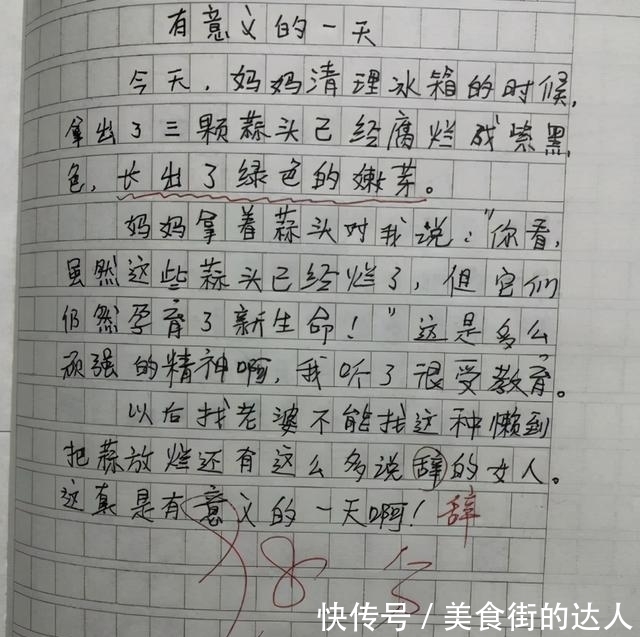 有意义的一天
今天,妈妈清理冰箱的时候,
拿出了三颗蒜头已经腐烂成紫黑
色,长出了绿色的嫩芽。
妈妈拿着蒜头对我说:"你看,
虽然这些蒜头已经烂了,但它们
仍然孕育了新生命!"这是多么
顽强的精神啊,我听了很受教育。
以后找老婆不能找这种懒到
把蒜放烂还有这么多说辞的女人。
这真是有意义的一天啊!辞
快传号/美食街的达人